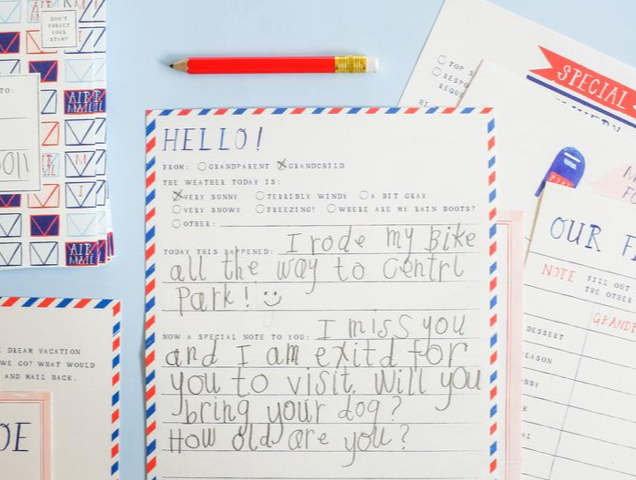 DON'T
FORGET
YOUR
STAMP
TO:
AIR
MAIL
HELLO!
FROM: GRANDPARENT GRANDCHILD
THE WEATHER TODAY IS:
VERY SUNNY TERRIBLY WINDY A BIT GRAY
VERY SNOWY FREEZING! WHERE ARE MY RAIN BOOTS?
OTHER:
TODAY THIS HAPPENED: I rode my Bike
all the way to Centrl
Park! :)
NOW A SPECIAL NOTE TO YOU: I miss you
and I am exitd for
you to visit. Will you
bring your dog?
How old are you?
DREAM VACATION
WE GO? WHAT WOULD
AND MAIL BACK.
OE
TOP S
RESPO
REQUE
SPECIAL
OUR F
NOTE FILL OUT
THE OTHER
GRANDP
DESSERT
EASON